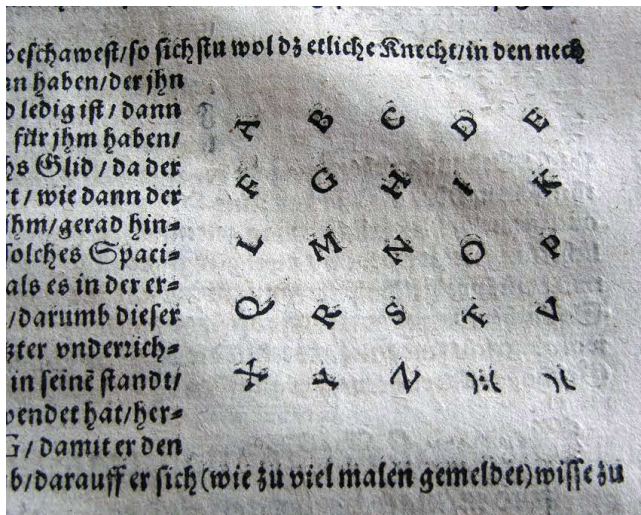 beschawest/so sichstu wol dz etliche Knecht/in den nech
nn haben/der jhn
d ledig ist / dann
für jhm haben/
hs Glid / da der
et / wie dann der
jhm/gerad hin=
solches Spaci=
als es in der er=
/darumb dieser
zter vnderrich=
in seinē standt/
wendet hat/her=
G/ damit er den
b/darauff er sich (wie zu viel malen gemeldet) wisse zu
A B C D E
F G H I K
L M N O P
Q R S T V
X Y Z ):( )(